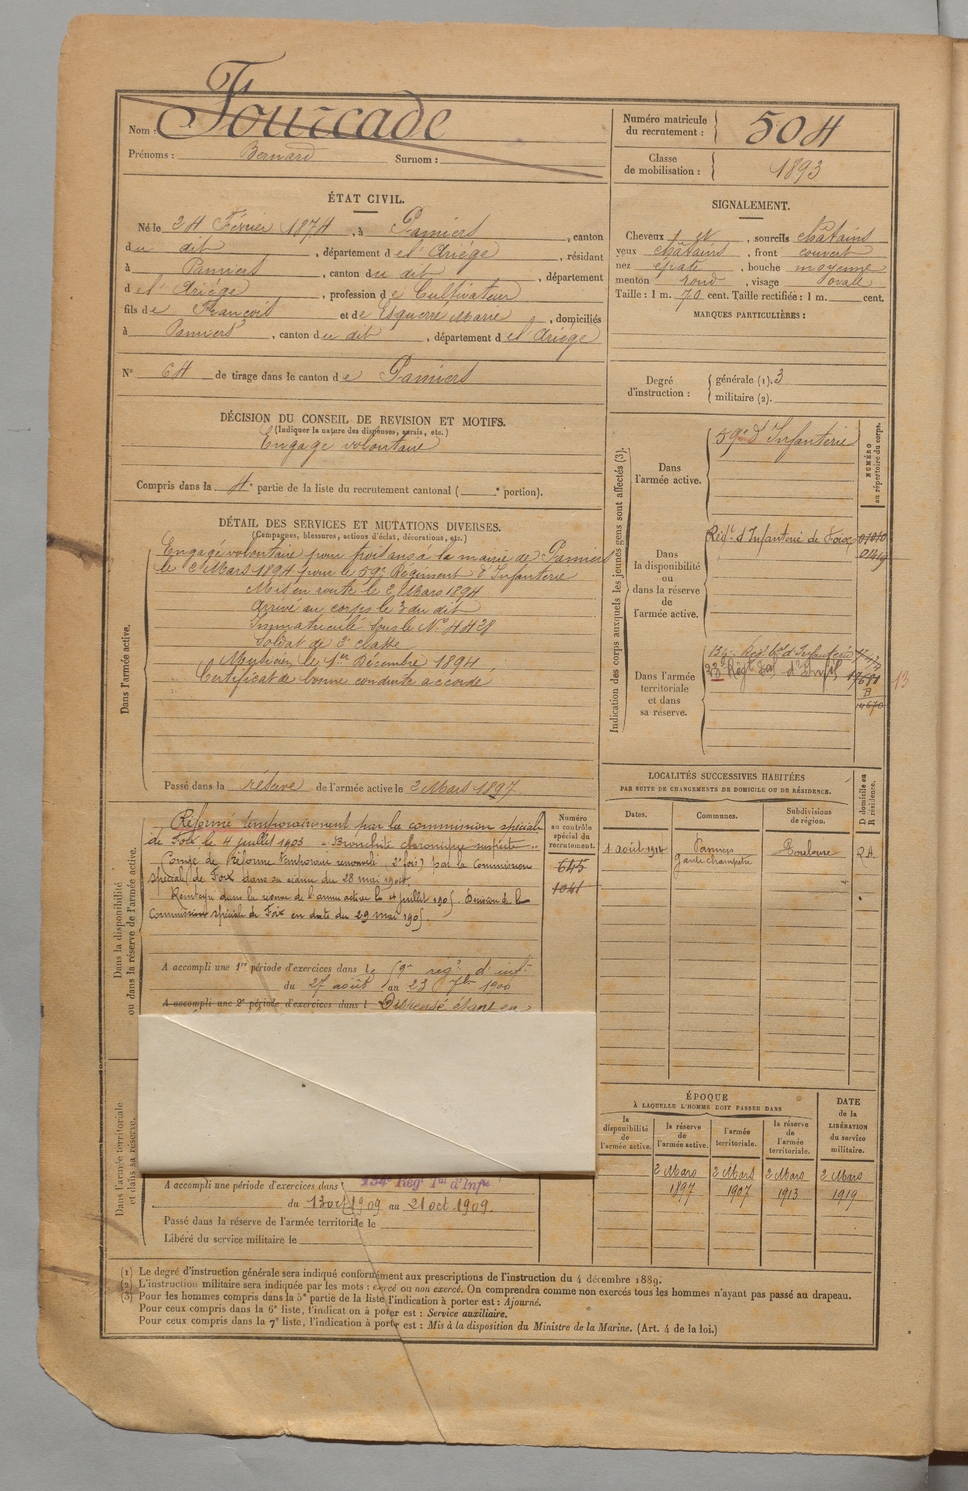 Nom : Fourcade
Prénoms : Bernard Surnom :
Numéro matricule
du recrutement : 504
Classe
de mobilisation : 1893
ÉTAT CIVIL.
Né le 24 Février 1874, à Pamiers, canton
du dit, département de l'Ariège, résidant
à Pamiers, canton du dit, département
de l'Ariège, profession de Cultivateur
fils de François et de Esquerre Marie, domiciliés
à Pamiers, canton du dit, département de l'Ariège
N° 64 de tirage dans le canton de Pamiers
SIGNALEMENT.
Cheveux et, sourcils châtains
yeux châtains, front couvert
nez épaté, bouche moyenne
menton rond, visage ovale
Taille : 1 m. 70 cent. Taille rectifiée : 1 m. cent.
MARQUES PARTICULIÈRES :
Degré
d'instruction :
générale (1). 3
militaire (2).
DÉCISION DU CONSEIL DE REVISION ET MOTIFS.
(Indiquer la nature des dispenses, sursis, etc.)
Engagé volontaire
Compris dans la 4e partie de la liste du recrutement cantonal ( e portion).
DÉTAIL DES SERVICES ET MUTATIONS DIVERSES.
(Campagnes, blessures, actions d'éclat, décorations, etc.)
Dans l'armée active.
Engagé volontaire pour trois ans à la mairie de Pamiers
le 2 Mars 1894 pour le 59e Régiment d'Infanterie
Mis en route le 2 Mars 1894
Arrivé au corps le 3 du dit
Immatriculé sous le N° 4428
Soldat de 2e classe
le 1er Décembre 1894
Certificat de bonne conduite accordé
Passé dans la réserve de l'armée active le 2 Mars 1897
Indication des corps auxquels les jeunes gens sont affectés (3).
NUMÉRO
au répertoire du corps.
Dans
l'armée active.
59e d'Infanterie
Dans
la disponibilité
ou
dans la réserve
de
l'armée active.
Régt d'Infanterie de Foix
Dans l'armée
territoriale
et dans
sa réserve.
134e Régt d'Infanterie
Régt d'Inf
13
LOCALITÉS SUCCESSIVES HABITÉES
PAR SUITE DE CHANGEMENTS DE DOMICILE OU DE RÉSIDENCE.
Dates.
Communes.
Subdivisions
de région.
D domicile ou
R résidence.
1 août 1912 Pamiers Toulouse
garde champêtre
Dans la disponibilité
ou dans la réserve de l'armée active.
Numéro
au contrôle
spécial du
recrutement.
645
1041
Réformé temporairement par la commission spéciale
de Foix le 4 juillet 1903 Bronchite chronique suspecte
Congé de Réforme Temporaire renouvelé (2e fois) par la Commission
spéciale de Foix dans sa séance du 28 mai 1904
dans la réserve de l'armée active le 4 juillet 1905. Décision de la
Commission spéciale de Foix en date du 29 mai 1905.
A accompli une 1re période d'exercices dans le 59e regt d'inft
du 27 août au 23 7bre 1900
A accompli une 2e période d'exercices dans l Dispensé étant en
Dans l'armée territoriale
et dans sa réserve.
A accompli une période d'exercices dans 134e Régt Tal d'Infie
du 13 oct 1909 au 21 oct 1909.
Passé dans la réserve de l'armée territoriale le
Libéré du service militaire le
ÉPOQUE
À LAQUELLE L'HOMME DOIT PASSER DANS
la
disponibilité
de
l'armée active.
la réserve
de
l'armée active.
l'armée
territoriale.
la réserve
de
l'armée
territoriale.
DATE
de la
LIBÉRATION
du service
militaire.
2 Mars 2 Mars 2 Mars 2 Mars
1897 1907 1913 1919
(1) Le degré d'instruction générale sera indiqué conformément aux prescriptions de l'instruction du 4 décembre 1889.
(2) L'instruction militaire sera indiquée par les mots : exercé ou non exercé. On comprendra comme non exercés tous les hommes n'ayant pas passé au drapeau.
(3) Pour les hommes compris dans la 5e partie de la liste l'indication à porter est : Ajourné.
Pour ceux compris dans la 6e liste, l'indication à porter est : Service auxiliaire.
Pour ceux compris dans la 7e liste, l'indication à porter est : Mis à la disposition du Ministre de la Marine. (Art. 4 de la loi.)